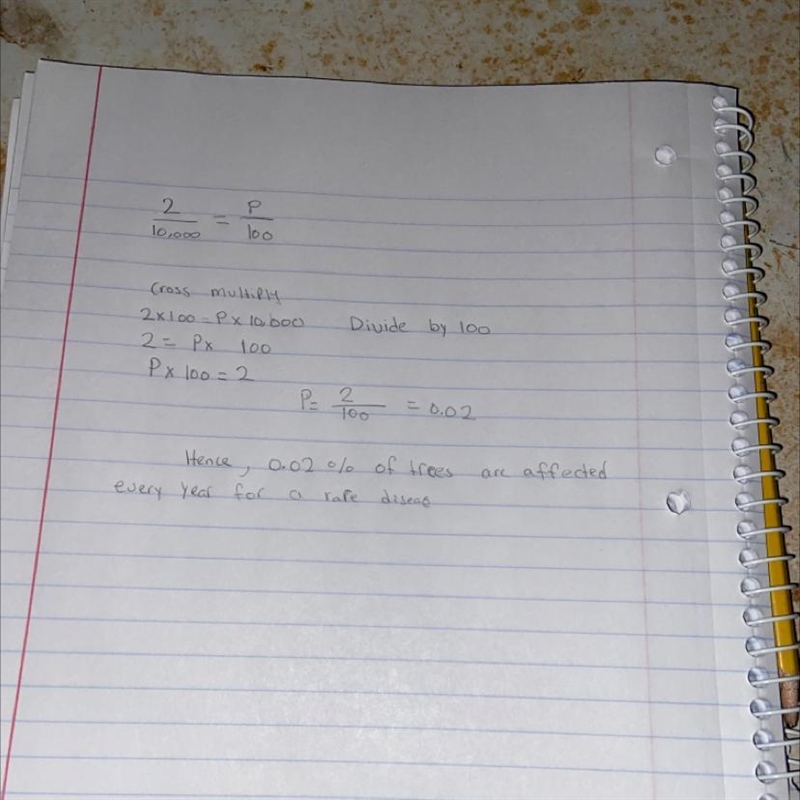 2/10,000 = P/100
Cross multiply
2x100 = P x 10,000 Divide by 100
2 = Px 100
P x 100 = 2
P = 2/100 = 0.02
Hence, 0.02 % of trees are affected
every year for a rare diseas